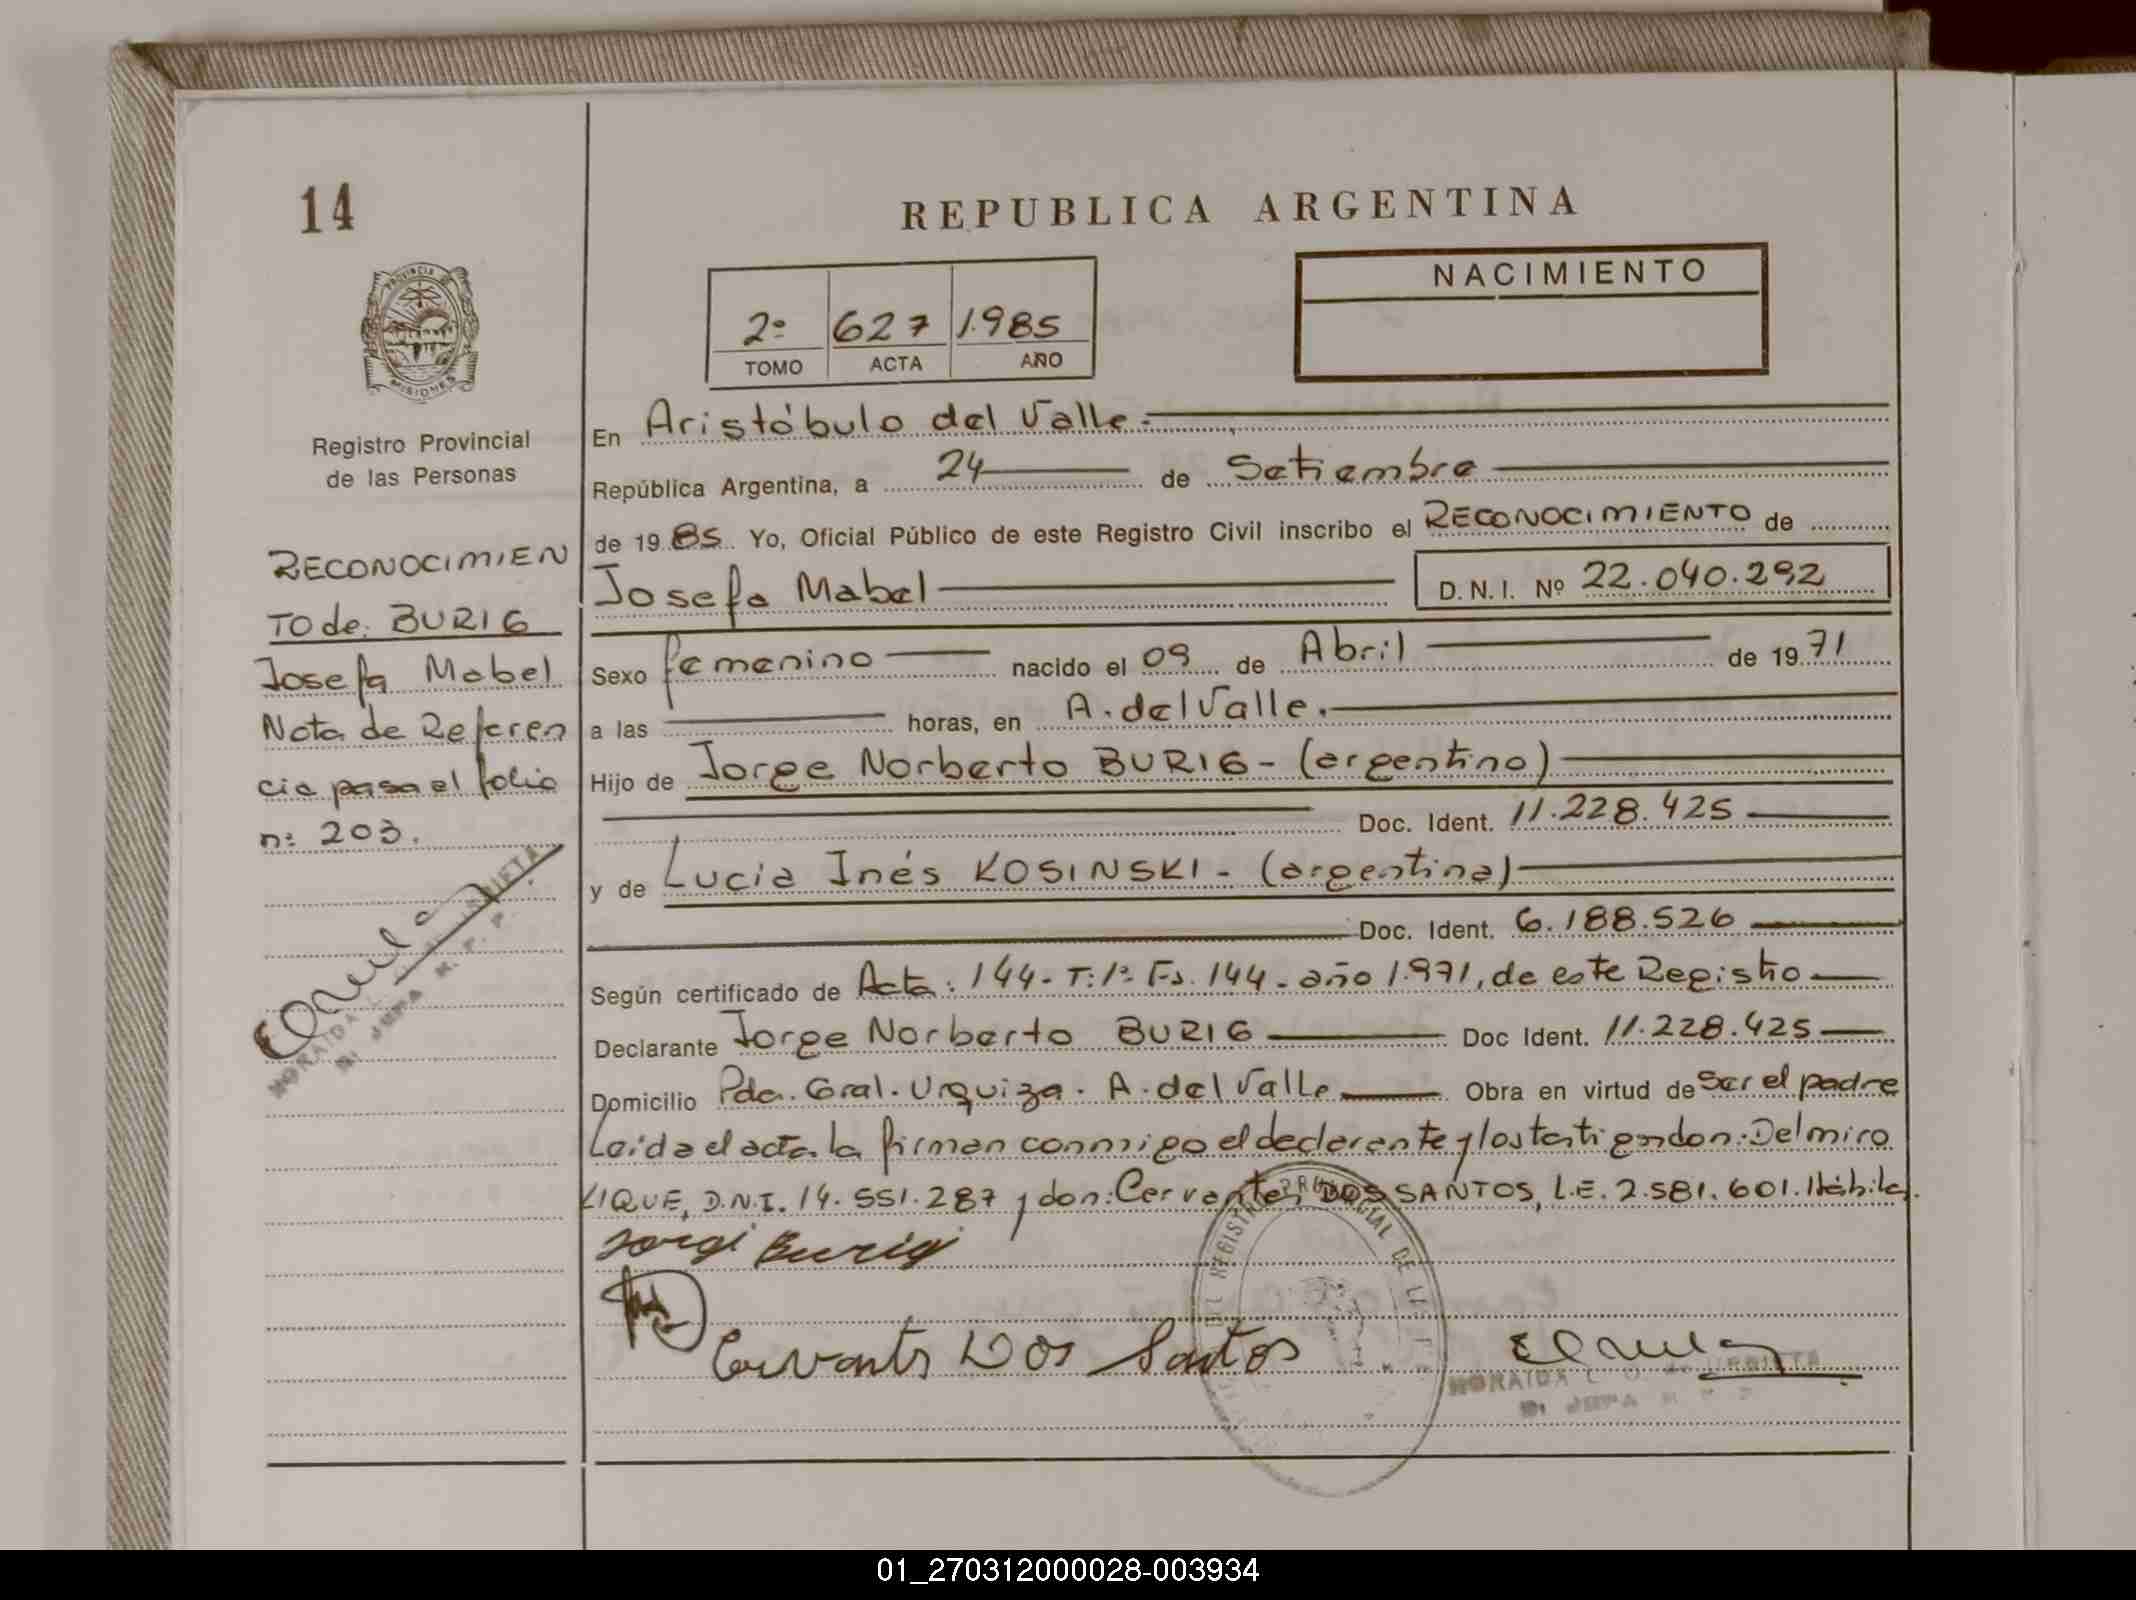 14
REPUBLICA ARGENTINA
NACIMIENTO
2º 627 1.985
TOMO ACTA AÑO
PROVINCIA DE
MISIONES
Registro Provincial
de las Personas
RECONOCIMIEN
TO de: BURIG
Josefa Mabel
Nota de Referen
cia pasa el folio
nº 203.
En Aristóbulo del Valle.-
República Argentina, a 24 de Setiembre
de 19 85 Yo, Oficial Público de este Registro Civil inscribo el RECONOCIMIENTO de
Josefa Mabel D.N.I. Nº 22.040.292
Sexo femenino nacido el 09 de Abril de 19 71
a las horas, en A. del Valle.
Hijo de Jorge Norberto BURIG - (argentino)
Doc. Ident. 11.228.425
y de Lucia Inés KOSINSKI - (argentina)
Doc. Ident. 6.188.526
Según certificado de Acta: 144 - T: 1º Fs. 144 - año 1.971, de este Registro
Declarante Jorge Norberto BURIG Doc Ident. 11.228.425
Domicilio Pda. Gral. Urquiza. A. del Valle Obra en virtud de Ser el padre
Leída el acta la firman conmigo el declarante y los testigos don: Delmiro
LIQUE, D.N.I. 14.551.287 y don: Cervantes DOS SANTOS, L.E. 2.581.601. Hábiles.
Jorge Burig
Cervantes Dos Santos
REGISTRO PROVINCIAL DE LAS
HORAIDA
01_270312000028-003934